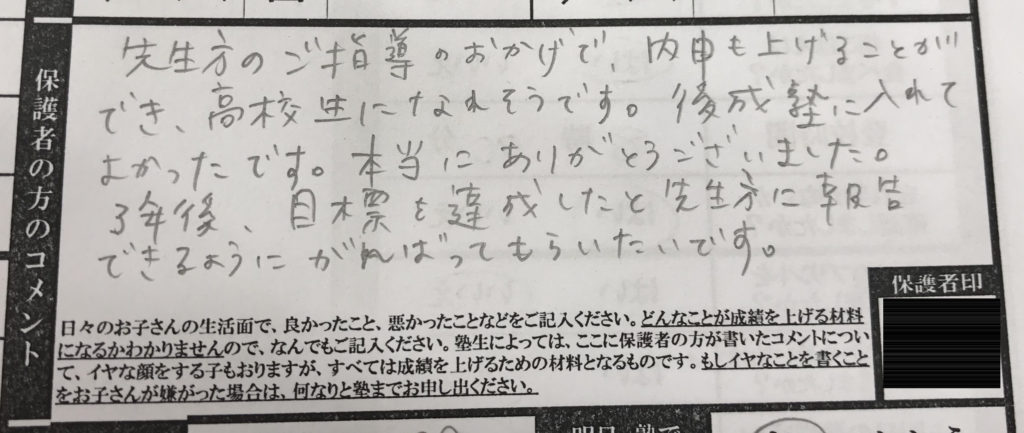 保護者の方のコメント
先生方のご指導のおかげで、内申も上げることが
でき、高校生になれそうです。後成塾に入れて
よかったです。本当にありがとうございました。
3年後、目標を達成したと先生方に報告
できるようにがんばってもらいたいです。
保護者印
日々のお子さんの生活面で、良かったこと、悪かったことなどをご記入ください。どんなことが成績を上げる材料
になるかわかりませんので、なんでもご記入ください。塾生によっては、ここに保護者の方が書いたコメントについ
て、イヤな顔をする子もおりますが、すべては成績を上げるための材料となるものです。もしイヤなことを書くこと
をお子さんが嫌がった場合は、何なりと塾までお申し出ください。